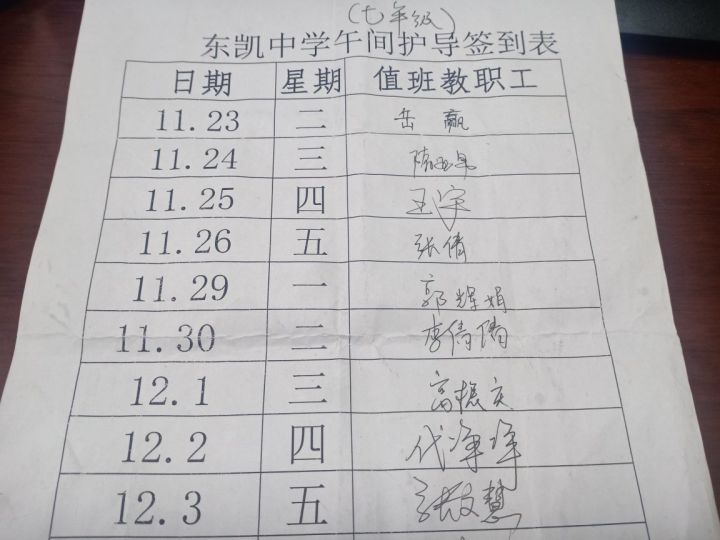 （七年级）
东凯中学午间护导签到表
日期 星期 值班教职工
11.23 二 岳赢
11.24 三 陈
11.25 四 王宇
11.26 五 张倩
11.29 一 郭辉娟
11.30 二 李倩倩
12.1 三 高振文
12.2 四 代净净
12.3 五 张文慧